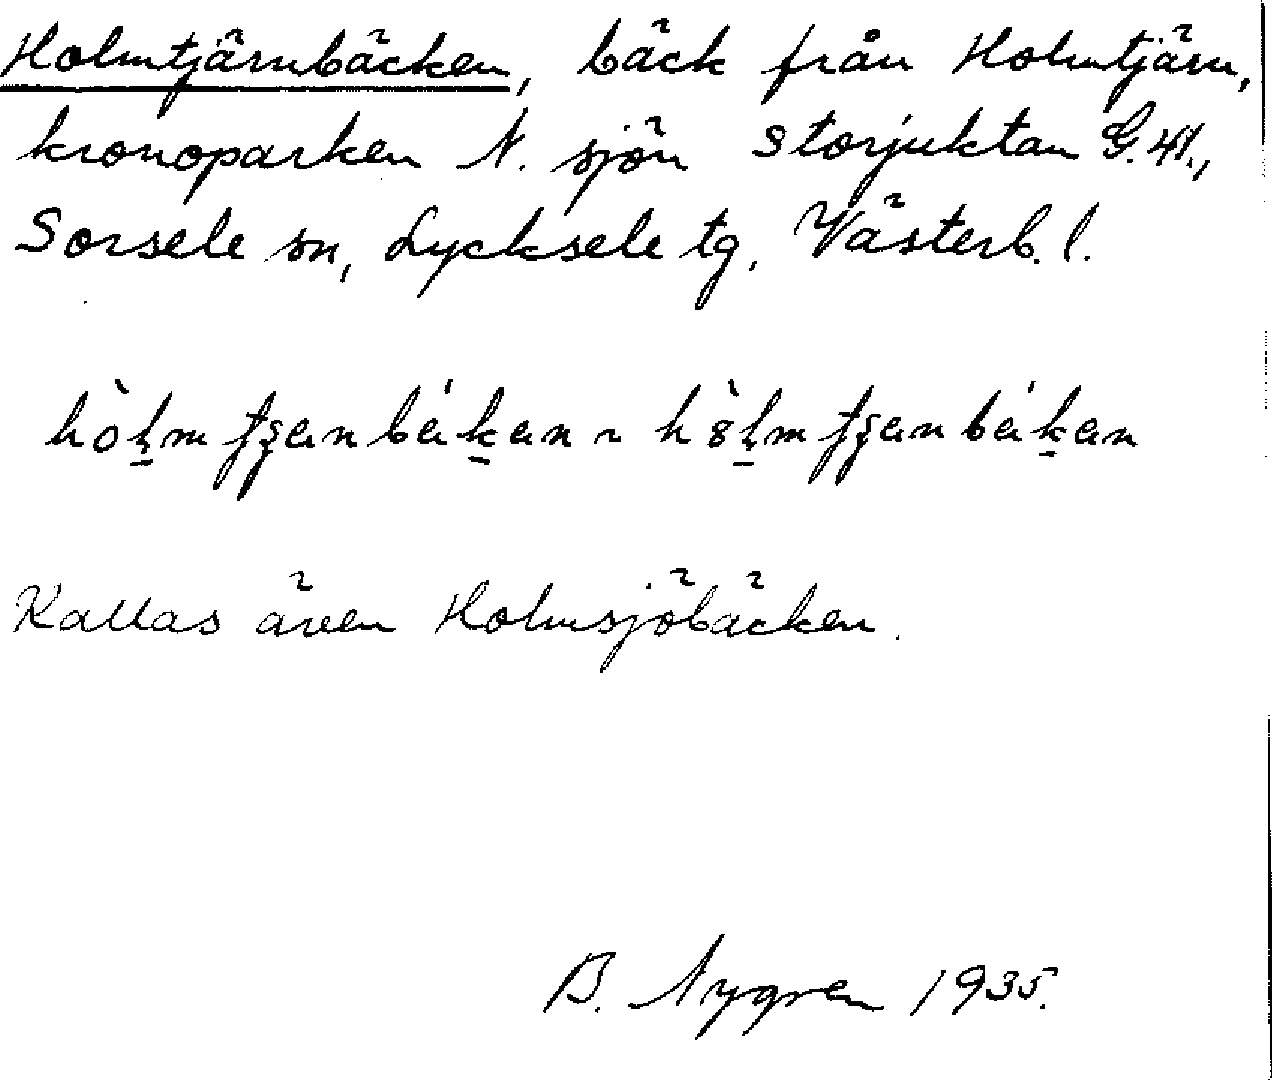 Holmtjärnbäcken, bäck från Holmtjärn,
kronoparken N. sjön Storjuktan G. 41.,
Sorsele sn, Lycksele tg, Västerb. l.
Kallas även Holmsjöbäcken.
B. Nygren 1935.